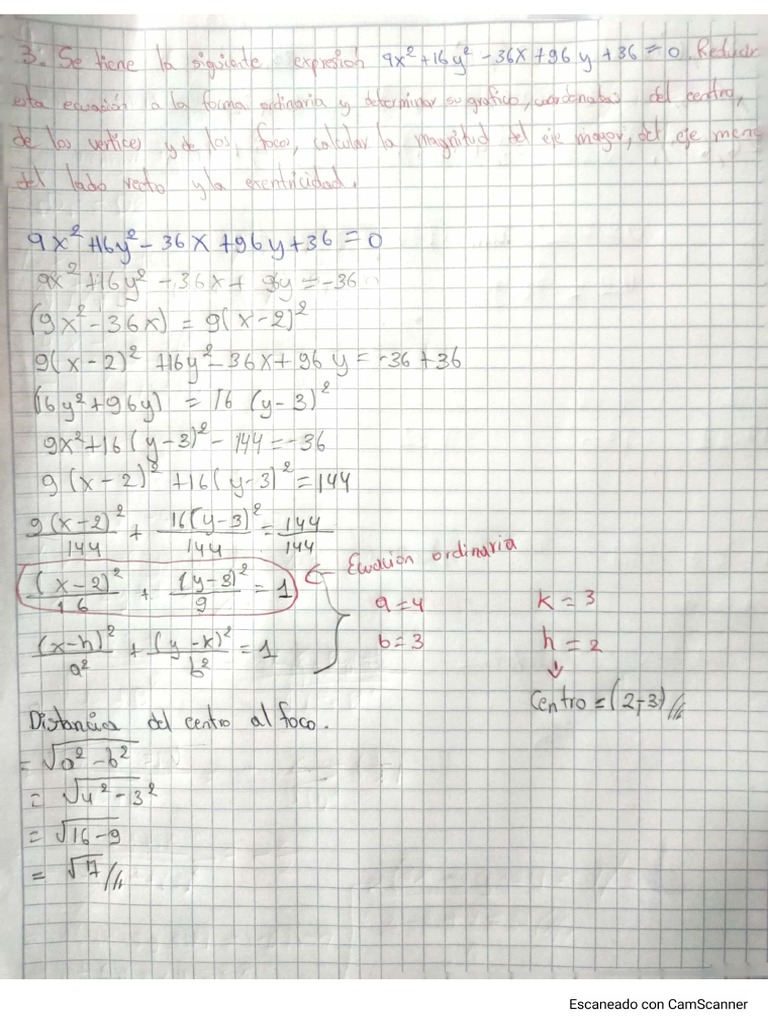 3. Se tiene la siguiente expresión 9x² + 16y² - 36x + 96y + 36 = 0. Reducir
esta ecuación a la forma ordinaria y determinar su grafico, coordenadas del centro,
de los vertices y de los, foco, calcular la magnitud del eje mayor, del eje meno
del lado recto y la exentricidad.
9x² + 16y² - 36x + 96y + 36 = 0
9x² + 16y² - 36x + 96y = -36
(9x² - 36x) = 9(x-2)²
9(x-2)² + 16y² - 36x + 96y = -36 + 36
(16y² + 96y) = 16 (y-3)²
9x² + 16(y-3)² - 144 = -36
9(x-2)² + 16(y-3)² = 144
9(x-2)²/144 + 16(y-3)²/144 = 144/144
(x-2)²/16 + (y-3)²/9 = 1 ← Ecuación ordinaria
a = 4 k = 3
b = 3 h = 2
(x-h)²/a² + (y-k)²/b² = 1
Centro = (2,-3)//
Distancia del centro al foco.
= √a² - b²
= √4² - 3²
= √16 - 9
= √7//
Escaneado con CamScanner